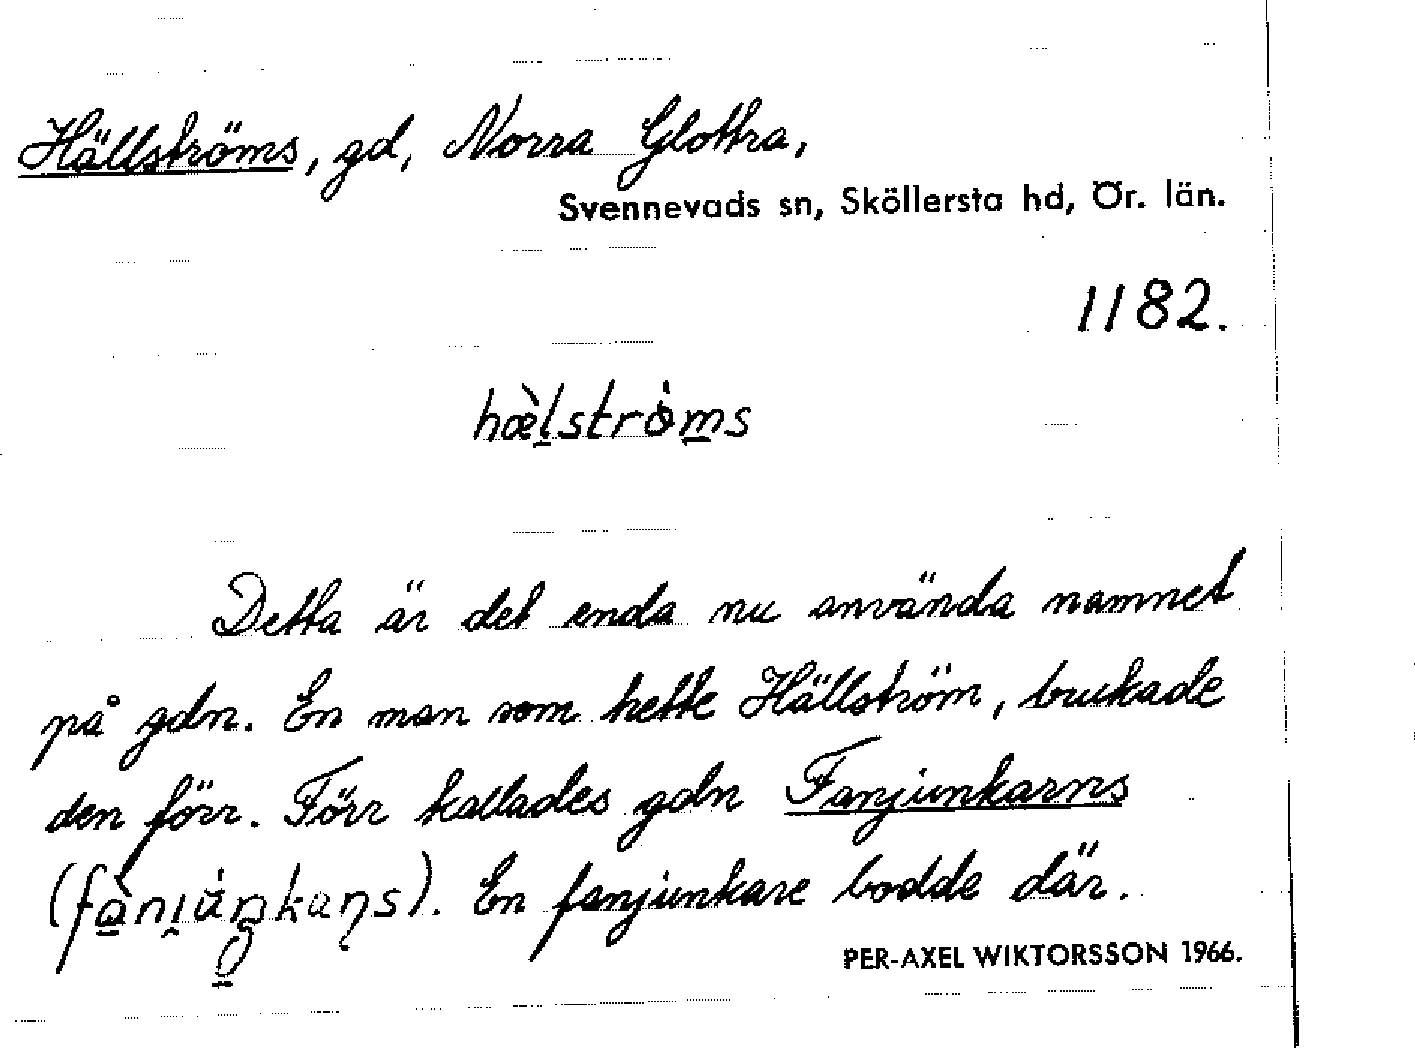 Hällströms, gd, Norra Glottra,
Svennevads sn, Sköllersta hd, Ör. län.
1182.
hæ̀l̠strò̇m̠s
Detta är det enda nu använda namnet
på gdn. En man som hette Hällström, brukade
den förr. Förr kallades gdn Fanjunkarns
En fanjunkare bodde där.
PER-AXEL WIKTORSSON 1966.